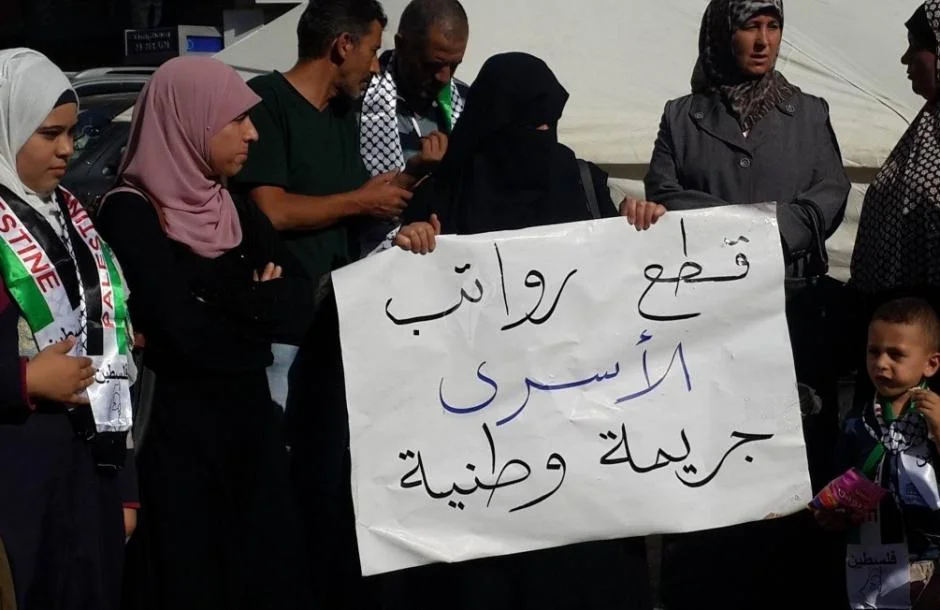 قطع رواتب
الأسرى
جريمة وطنية
PALESTINE
فلسطين
فلسطين